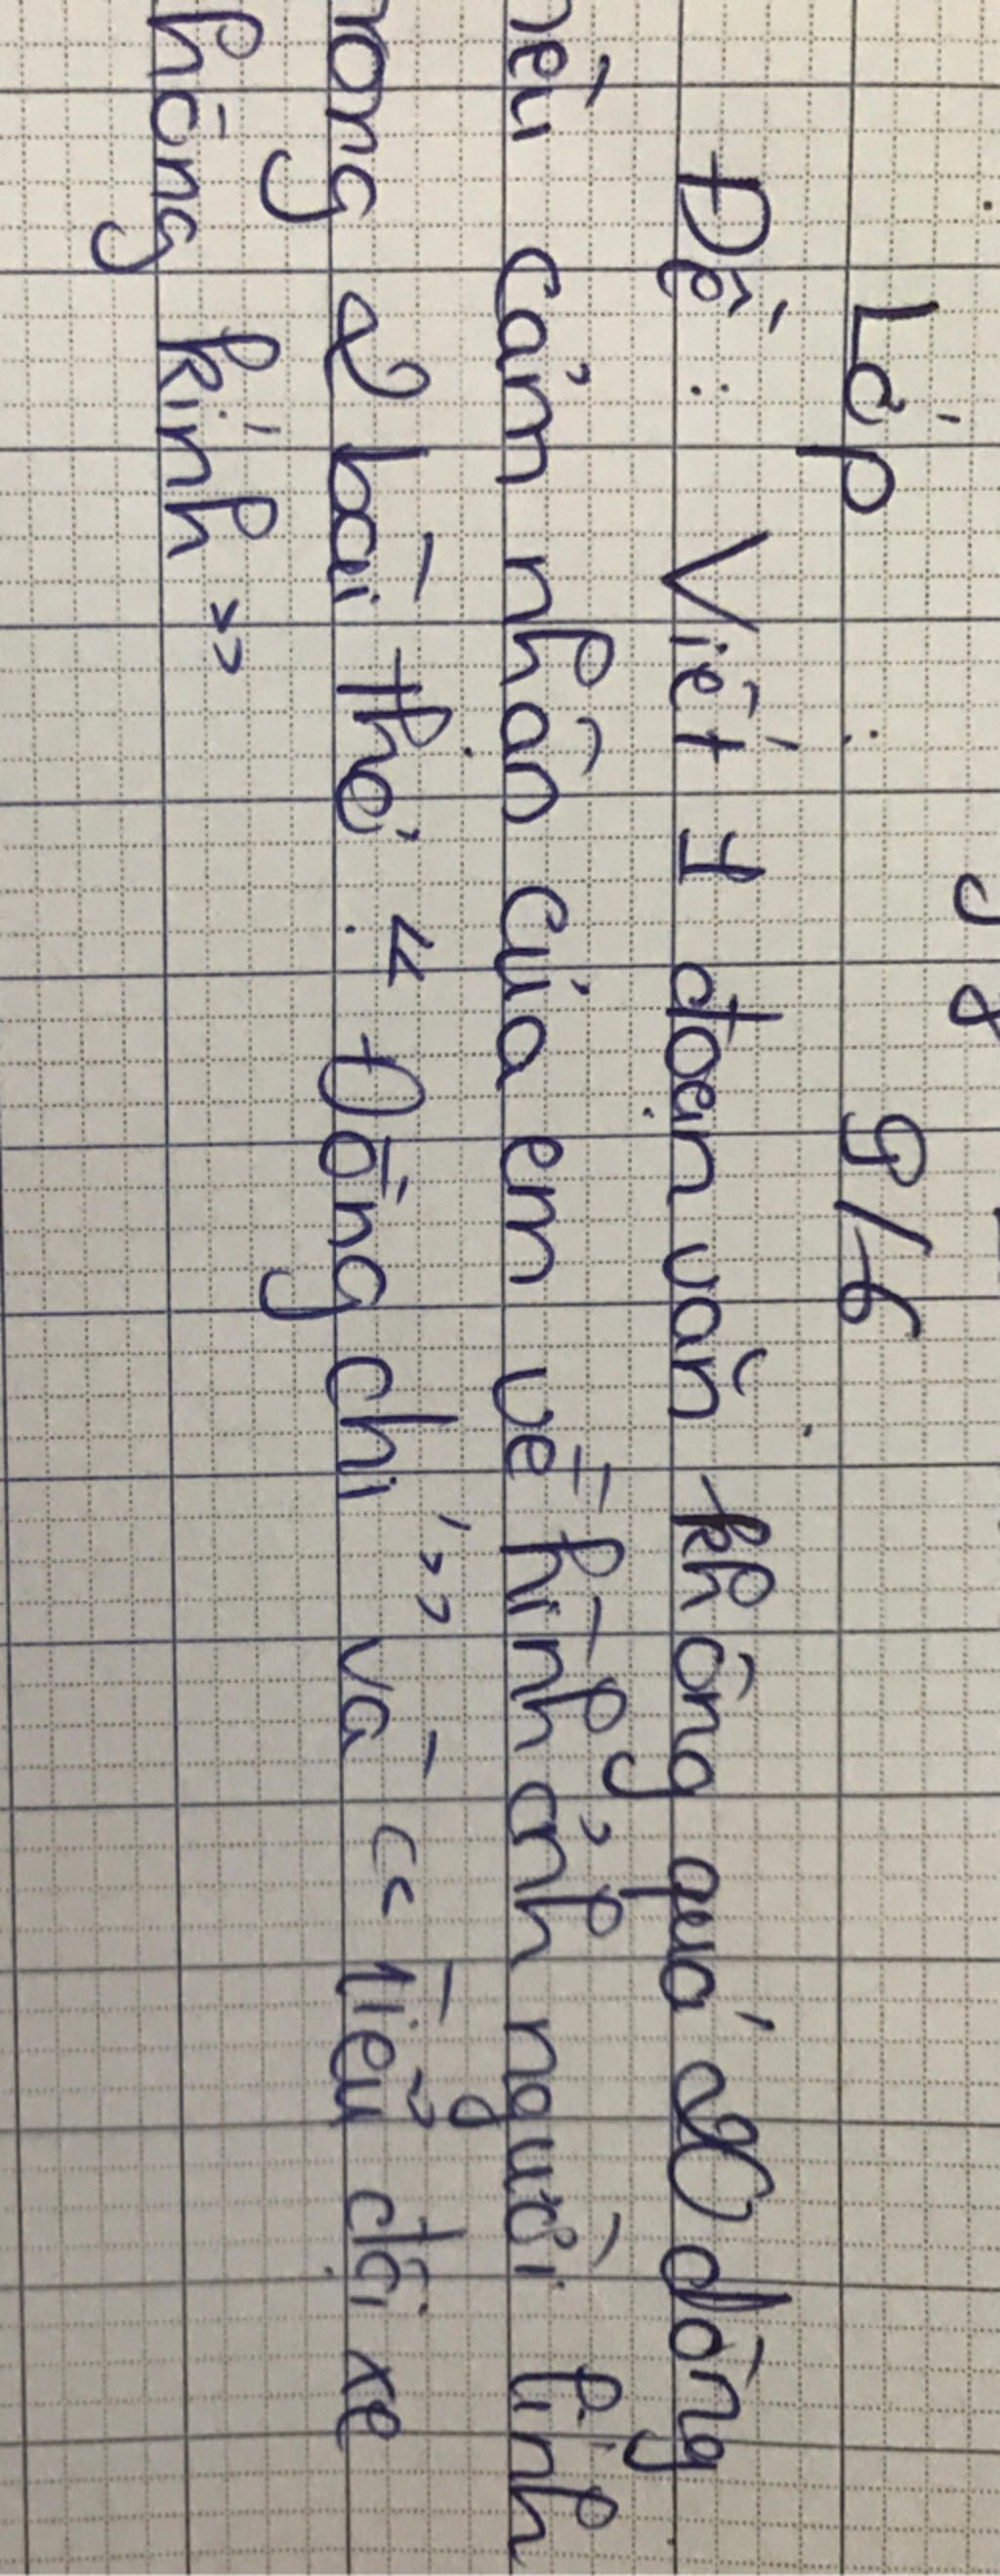 Lớp 9/6
Đề: Viết 1 đoạn văn không quá 20 dòng
nêu cảm nhận của em về hình ảnh người lính
trong 2 bài thơ: "Đồng chí" và "tiểu đội xe
không kính"